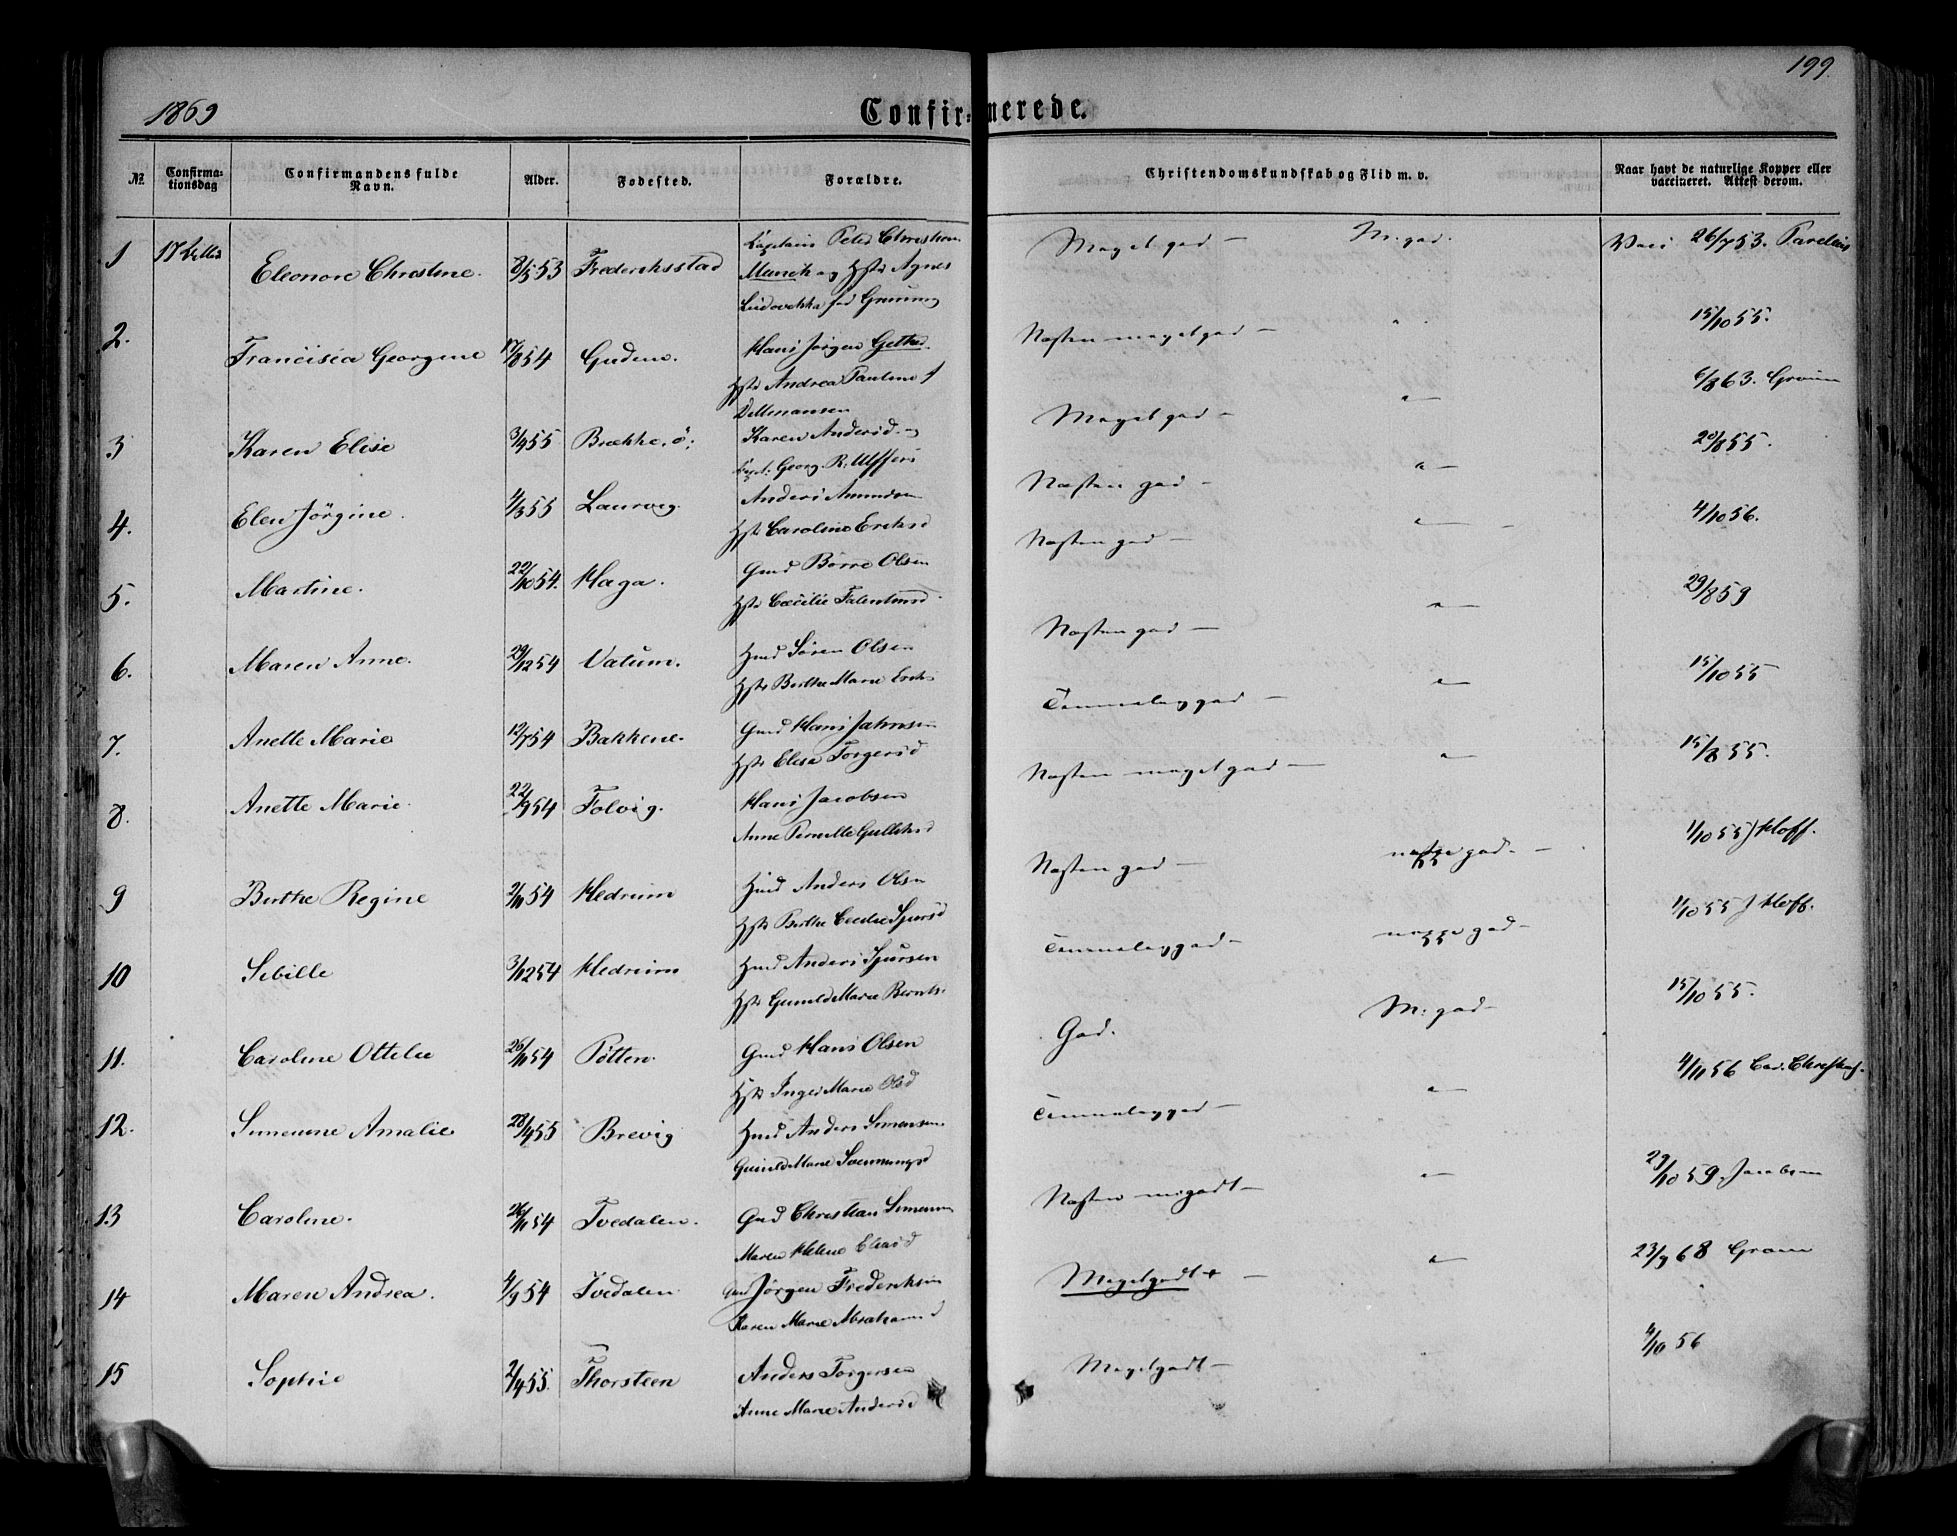 1869 Confirmerede. 199.
№ Confirmationsdag Confirmandens fulde Navn. Alder. Fødested. Forældre. Christendomskundskab og Flid m. v. Naar havt de naturlige Kopper eller vaccineret. Attest derom.
1 17 Eleonore Christine. 8/5 53 Frederiksstad Peter Christian Munch og Hst Agnes Ludovikka Meget god — M. god. Vacc 26/7 53.
2. Georgine 17/8 54 Guden. Hans Jørgen Hst Andrea Pauline Næsten meget god — " 15/10 55.
6/8 63.
3 Karen Elise 3/9 55 Brække, ö: Karen Andersd. og Capt: Georg. R. Meget god — " — 20/8 55.
4. Elen Jörgine. 4/3 55 Laurvig. Anders Amundsen Hst Caroline Eriksd Næsten god — " — 4/10 56.
5. Martine. 22/10 54. Haga. Gmd Börre Olsen Hst Cæcilie Næsten god — " — 29/8 59
6. Maren Anne. 29/12 54 Valum. Hmd Sören Olsen Hst Berthe Marie Eriks Næsten god — " — 15/10 55
7. Anette Marie 12/7 54 Bakkene. Gmd Hans Jahnsen Hst Elise Torgersd Temmelig god — " — 15/8 55.
8. Anette Marie. 22/9 54 Folvig. Hans Jacobsen Anne Pernelle Næsten meget god — " — 1/10 55 J Hoff.
9 Berthe Regine 2/11 54 Hedrum Hmd Anders Olsen Hst Berthe Næsten god — god. — 1/10 55 J Hoff.
10 Sibille 3/12 54 Hedrum Hmd Anders Sjursen Hst Gunild Marie Bernts. Temmelig god — god — 15/10 55.
11. Caroline Ottilie 26/11 54 Pötten. Gmd Hans Olsen Hst Inger Marie Olsd God. M: god — 4/11 56
12. Amalie 28/4 55 Brevig Hmd Anders Simensen Gunild Marie Temmelig god — " —
13 Caroline. 26/11 54 Tvedalen. Gmd Christian Maren Helene Eliasd Næsten m. godt — " — 29/10 59. Jacobsen
14 Maren Andrea. 4/9 54 Tvedalen Gmd Jørgen Frederiksen Karen Marie Abrahamsd Meget godt + — " — 23/9 68
15 Sophie 2/4 55. Thorsteen Anders Torgersen Anne Marie Andersd Meget godt — 4/10 56